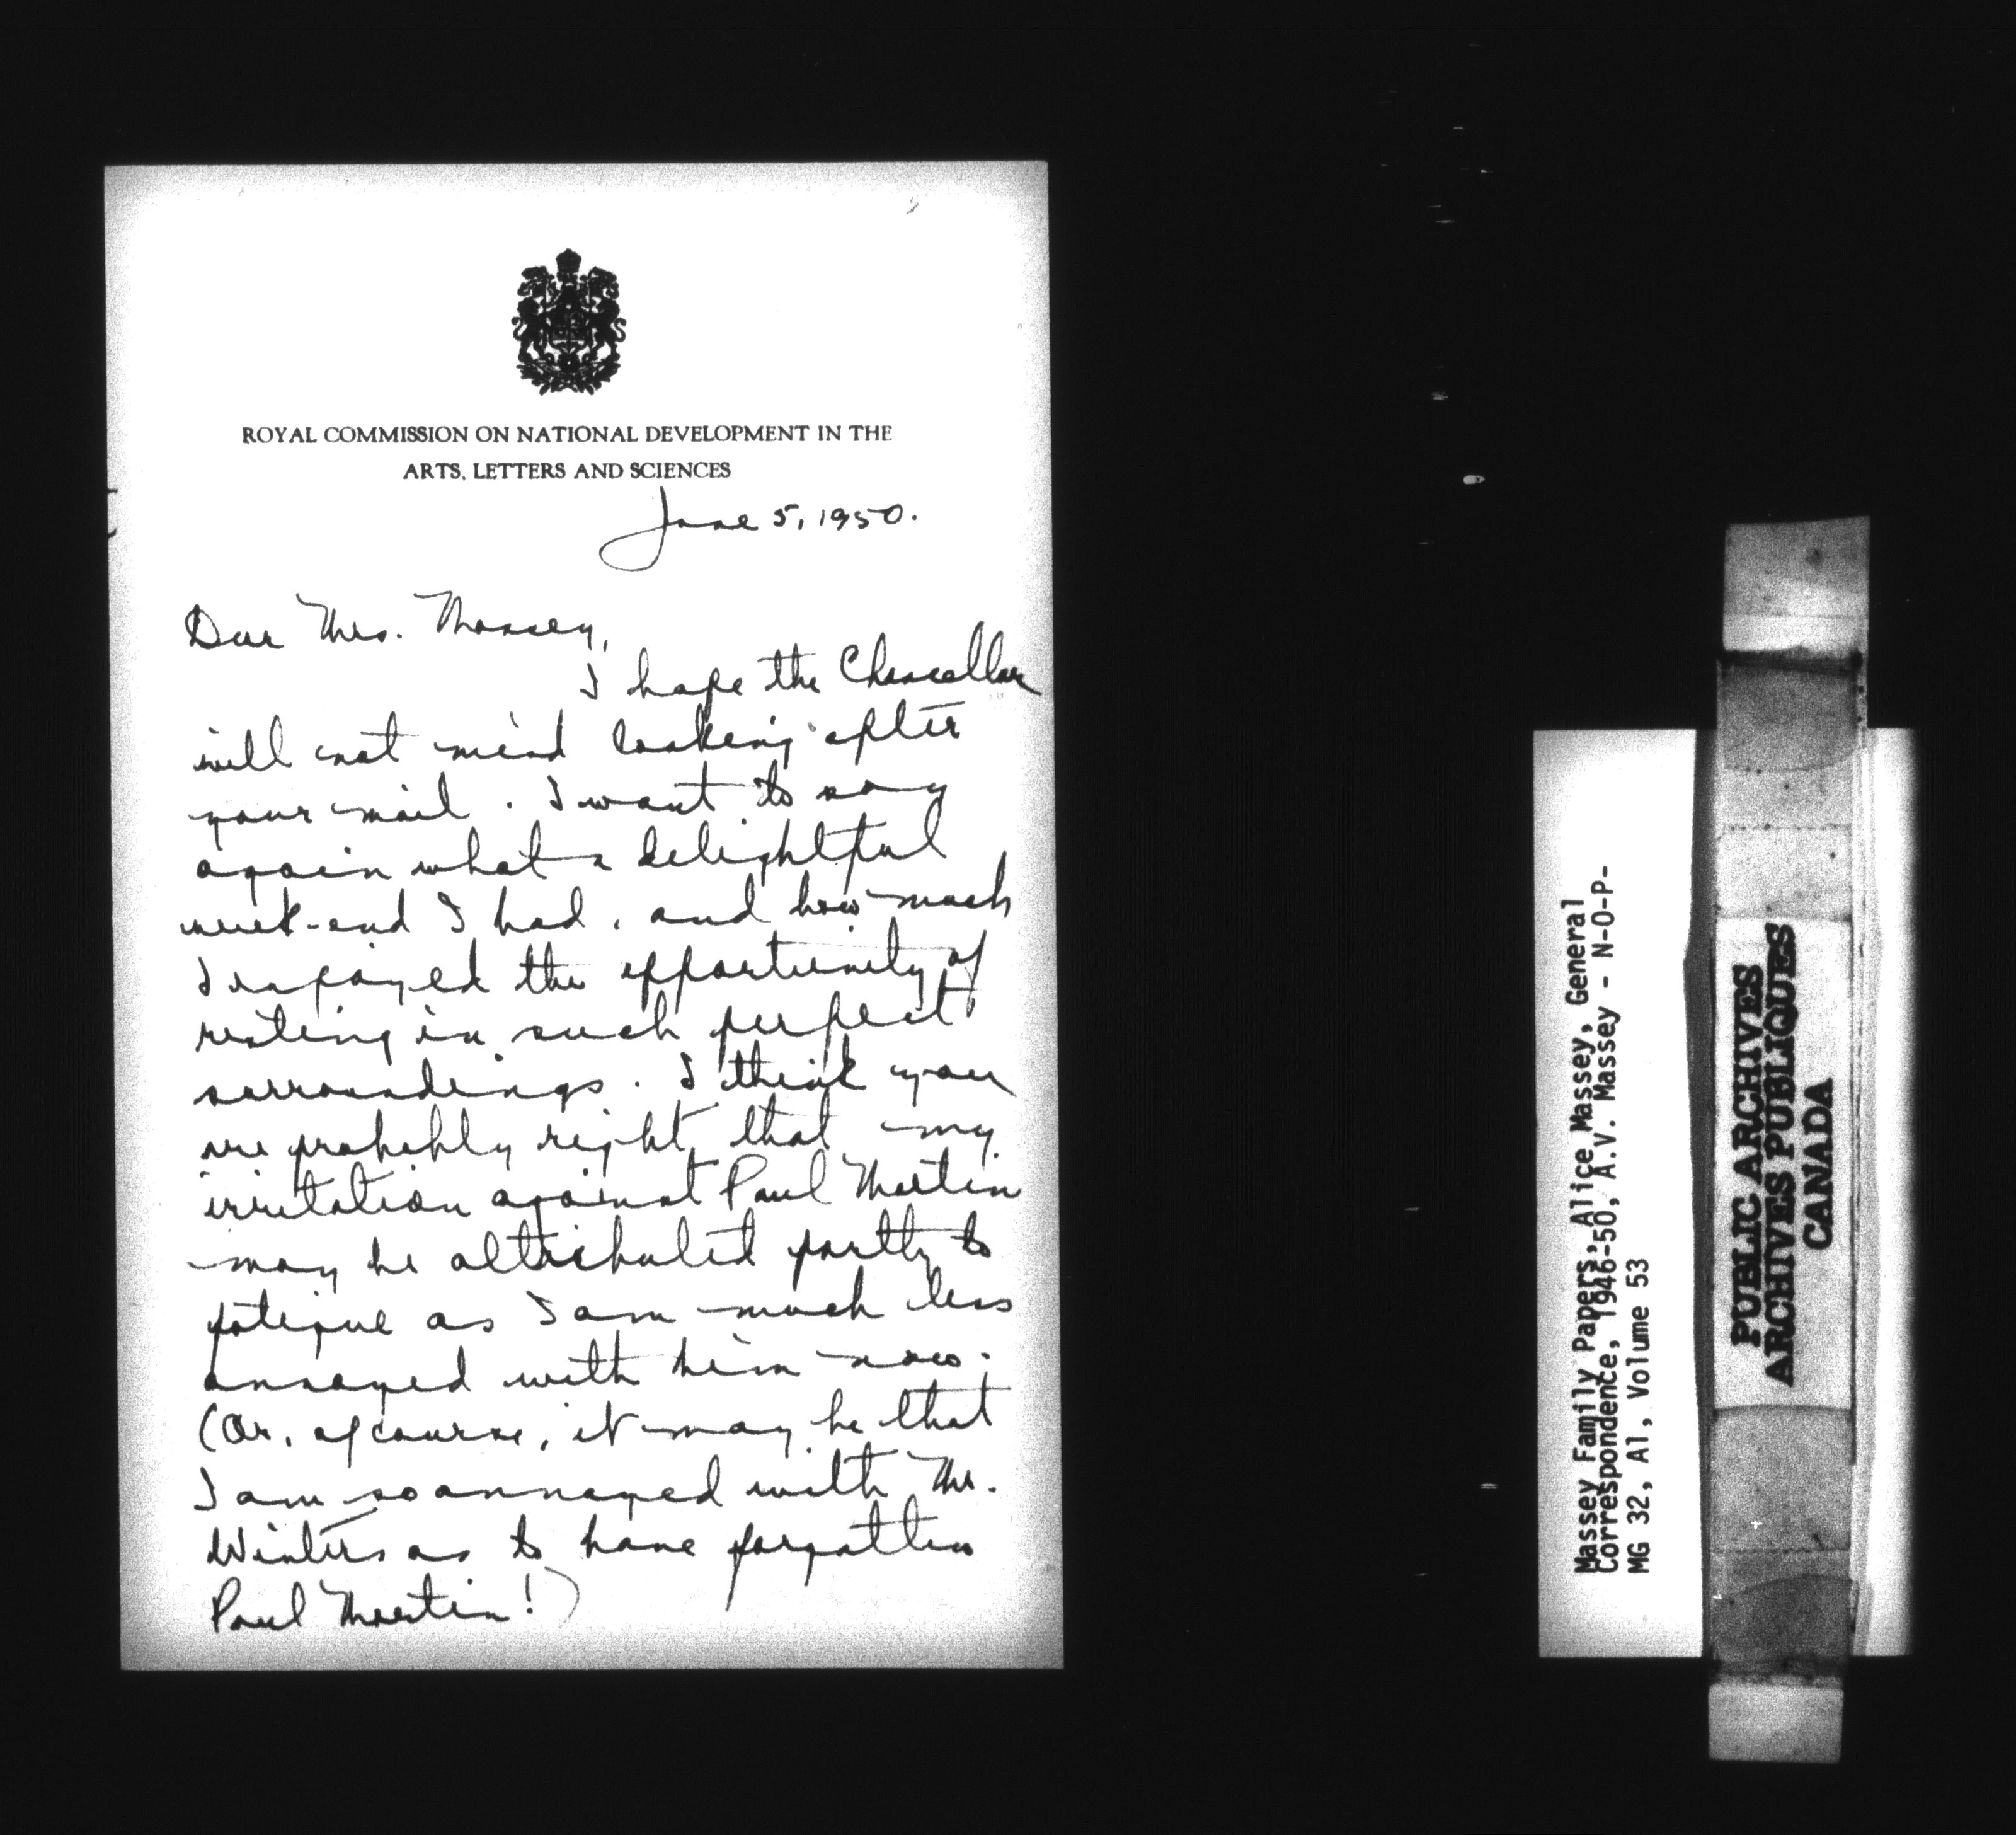 ROYAL COMMISSION ON NATIONAL DEVELOPMENT IN THE
ARTS, LETTERS AND SCIENCES
June 5, 1950.
Dear Mrs. Massey,
I hope the Chancellor
will not mind looking after
your mail. I want to say
again what a delightful
week-end I had, and how much
I enjoyed the opportunity of
resting in such perfect
surroundings. I think you
are probably right that my
irritation against Paul Martin
may be attributed partly to
fatigue as I am much less
annoyed with him now.
(Or, of course, it may be that
I am so annoyed with Mr.
Winters as to have forgotten
Paul Martin!)
Massey Family Papers, Alice Massey, General
Correspondence, 1946-50, A.V. Massey - N-O-P-
MG 32, A1, Volume 53
PUBLIC ARCHIVES
ARCHIVES PUBLIQUES
CANADA